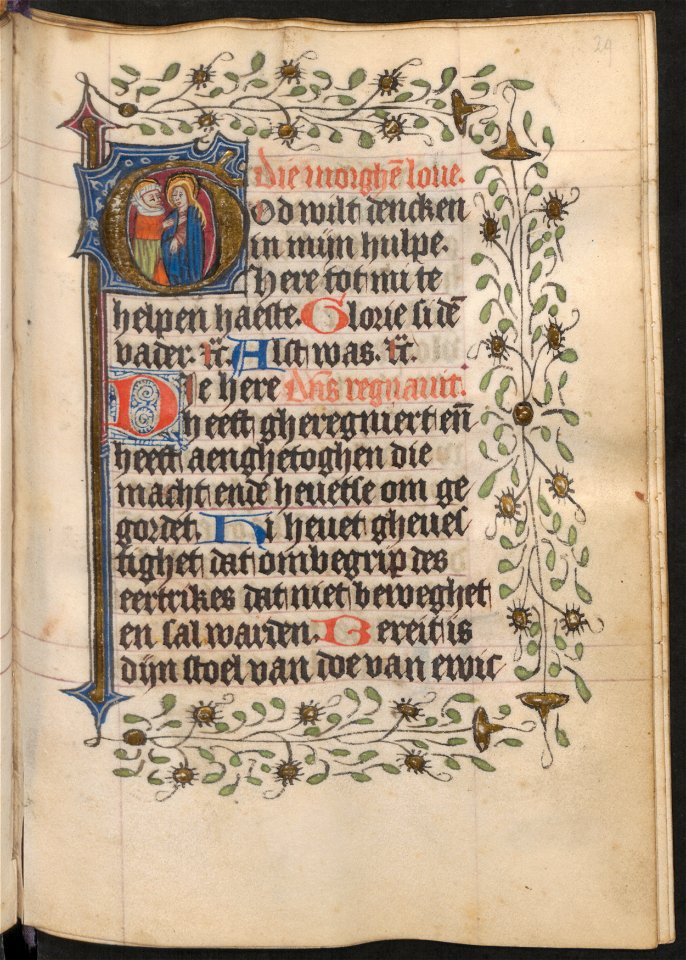 29
Die morghē loue.
God wilt dencken
in mijn hulpe.
here tot mi te
helpen haeste. Glorie si dē
vader. ⁊c̄. Alst was. ⁊c̄.
Die here Dn̄s regnauit.
heeft gheregniert en̄
heeft aenghetoghen die
macht ende heuetse om ge
gordet. Hi heuet gheues
tighet dat ombegrip des
eertrikes dat niet beweghet
en sal warden. Bereit is
dijn stoel van doe van ewic